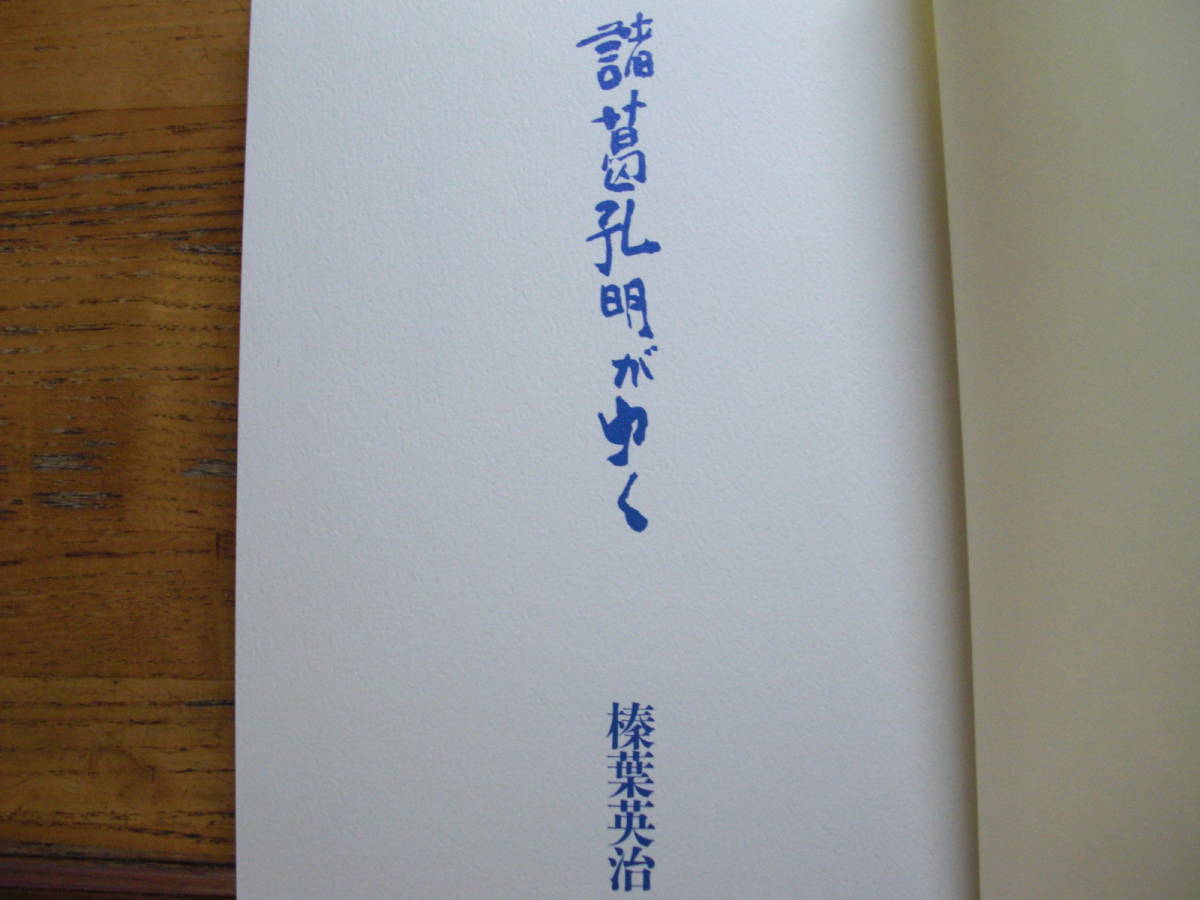 諸葛孔明がゆく
榛葉英治